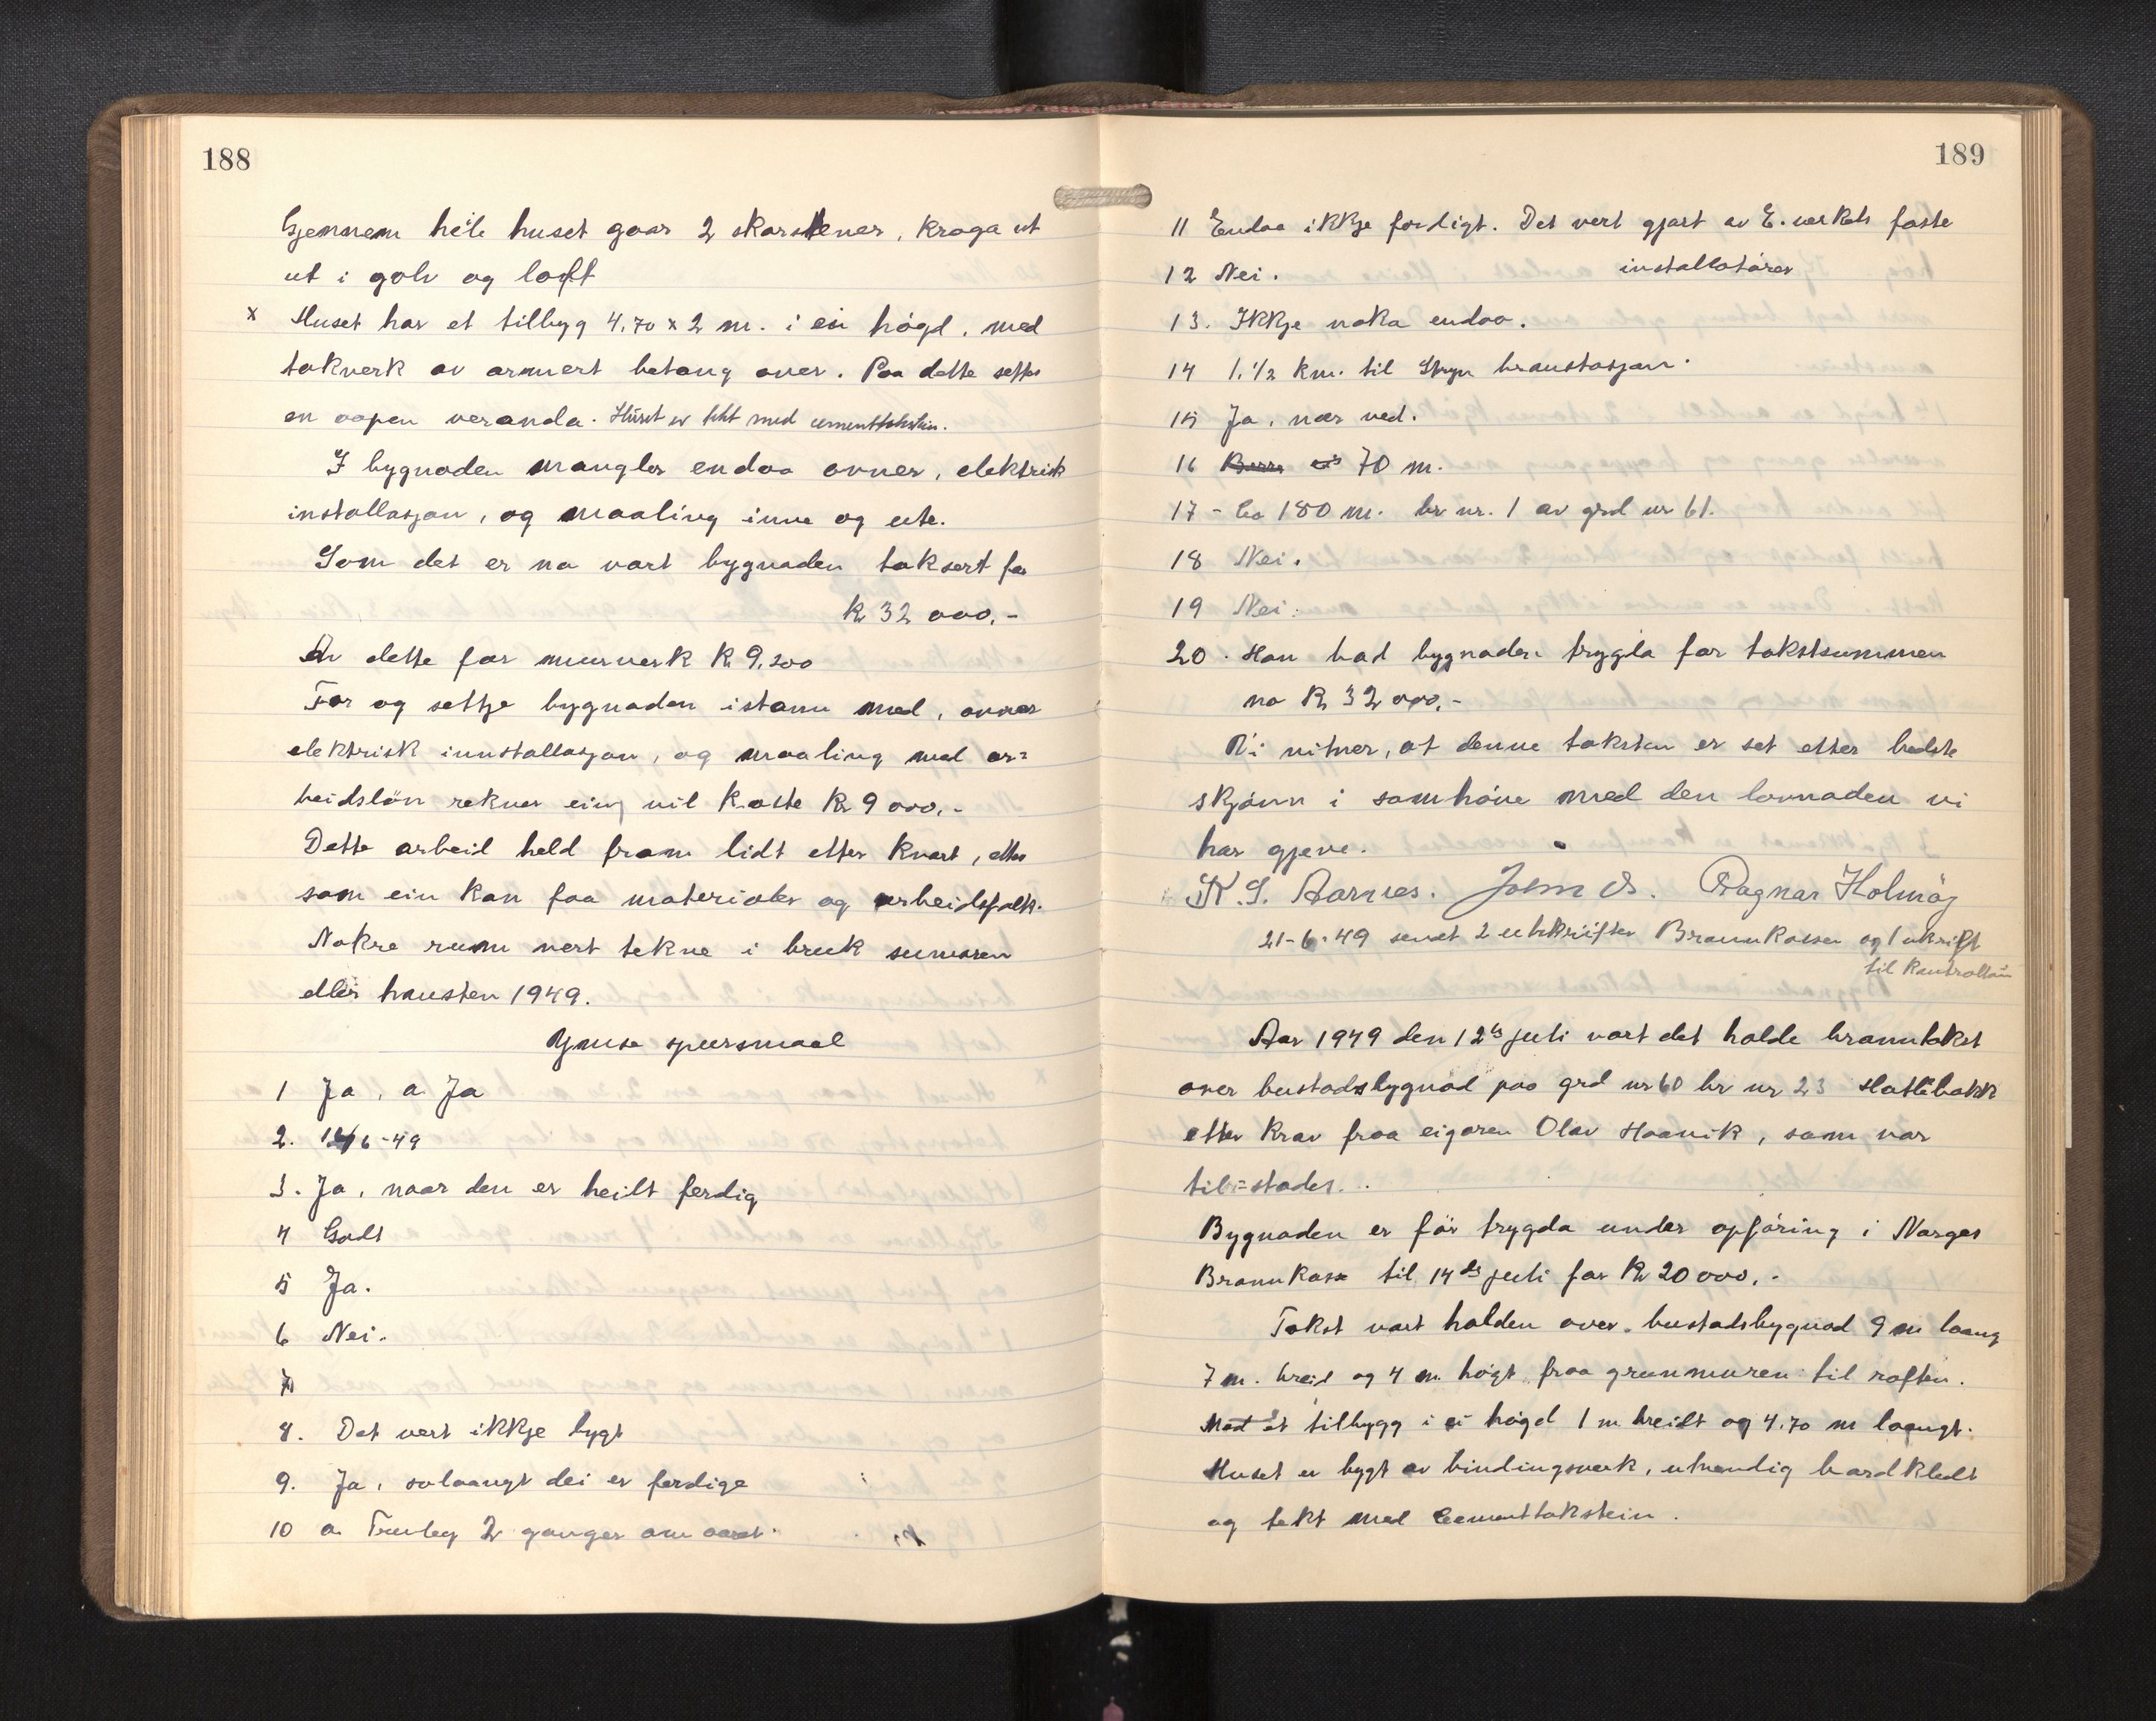 188
Gjennem heile huset gaar 2 skarstener, kraga ut
ut i golv og loft
x Huset har et tilbyg 4.70 x 2 m. i ei högd, med
takverk av armert betong over. Paa dette settes
en aapen veranda. Huset er tekt med cementtakstein.
I bygnaden mangler endaa ovner, elektrisk
installasjon, og maaling inne og ute.
Som det er na vart bygnaden taksert for
Kr 32 000,-
Av dette for murverk Kr 9,200
For og settje bygnaden istann med, ovner
elektrisk innstallasjon, og maaling med ar=
beidslön rekner ein vil koste Kr 9 000,-
Dette arbeid held fram lidt etter kvart, etter
som ein kan faa materialer og arbeidsfolk.
Nokre rum vert tekne i bruk sumaren
eller hausten 1949.
Ymse spursmaal
1 Ja, a. Ja
2. 14/6-49
3. Ja, naar den er heilt ferdig
4 Godt
5 Ja.
6 Nei.
7
8. Det vert ikkje bygt
9. Ja, solaangt dei er ferdige
10 a. Truleg 2 ganger om aaret.
189
11 Endaa ikkje ferdigt. Det vert gjort av E.verkets faste
installatörer
12 Nei.
13. Ikkje noka endaa.
14 1.1/2 km. til Stryn branstasjon.
15 Ja, nær ved.
16 70 m.
17 - Ca 180 m. br nr. 1 av grd nr 61.
18 Nei.
19 Nei.
20. Han bad bygnaden trygda for takstsummen
na Kr 32 000,-
Vi vitner, at denne taksten er set etter bedste
skjönn i samhöve med den lovnaden vi
har gjeve.
K. S. Aarnes. John Ø. Ragnar Holmöy
21-6-49 sendt 2 utskrifter Brannkassen og 1 utskrift
til Kontrollön
Aar 1949 den 12te juli vart det halde branntakst
over bustadsbygnad paa grd nr 60 br nr 23 Hatlebakk
etter krav fraa eigaren Olav Haavik, som var
til=stades.
Bygnaden er för trygda under opföring i Norges
Brannkasse til 14de juli for Kr 20 000,-
Takst vart halden over bustadsbygnad 9 m laang
7 m. breid og 4 m. högt fraa grunmuren til raften.
Med et tilbygg i ei högd 1 m breidt og 4.70 m laangt.
Huset er bygt av bindingsverk, utvendig bordkledt
og tekt med Cementtakstein.